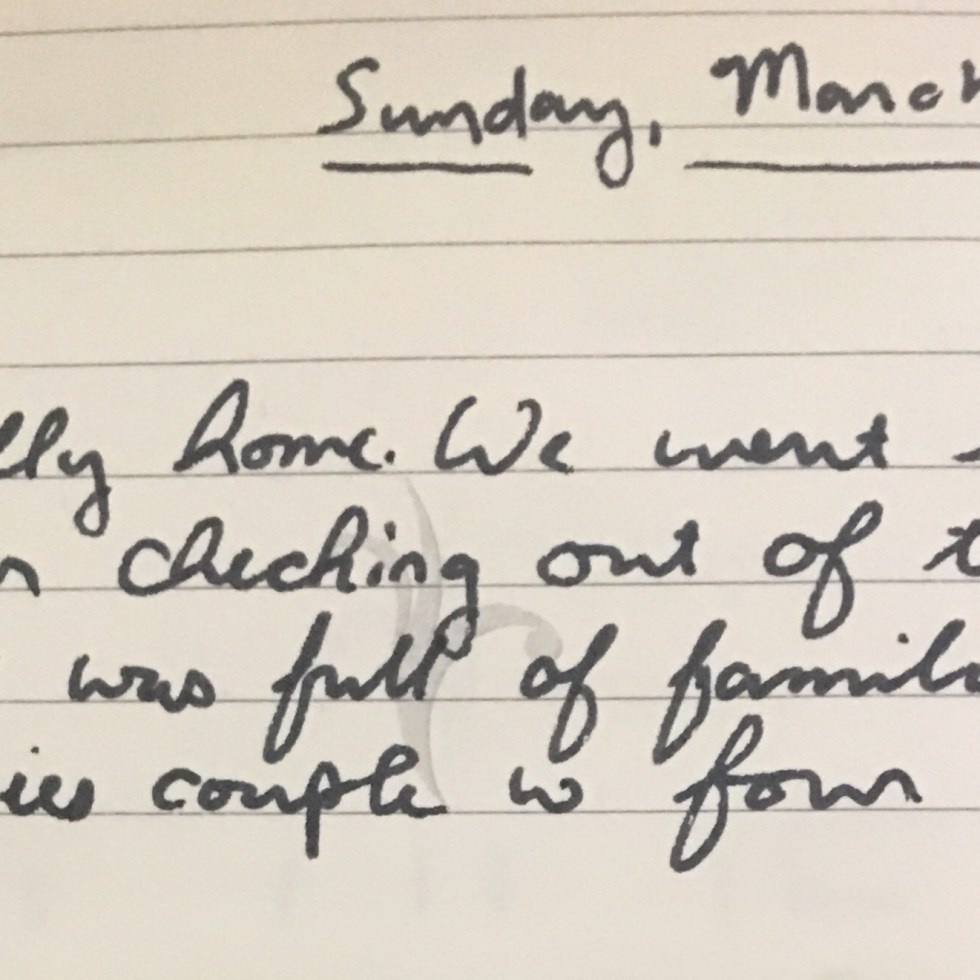 Sunday, March
lly home. We went
n checking out of t
was full of famili
ies couple w four